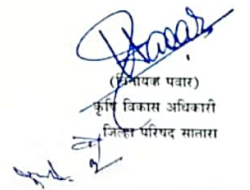 (विनायक पवार)
कृषि विकास अधिकारी
जिल्हा परिषद सातारा